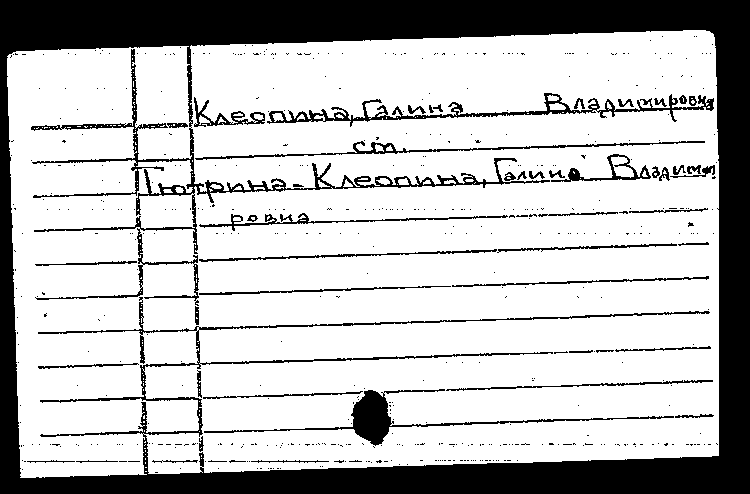 Клеопина, Галина Владимировна
см.
Тютрина-Клеопина, Галина Владими
ровна